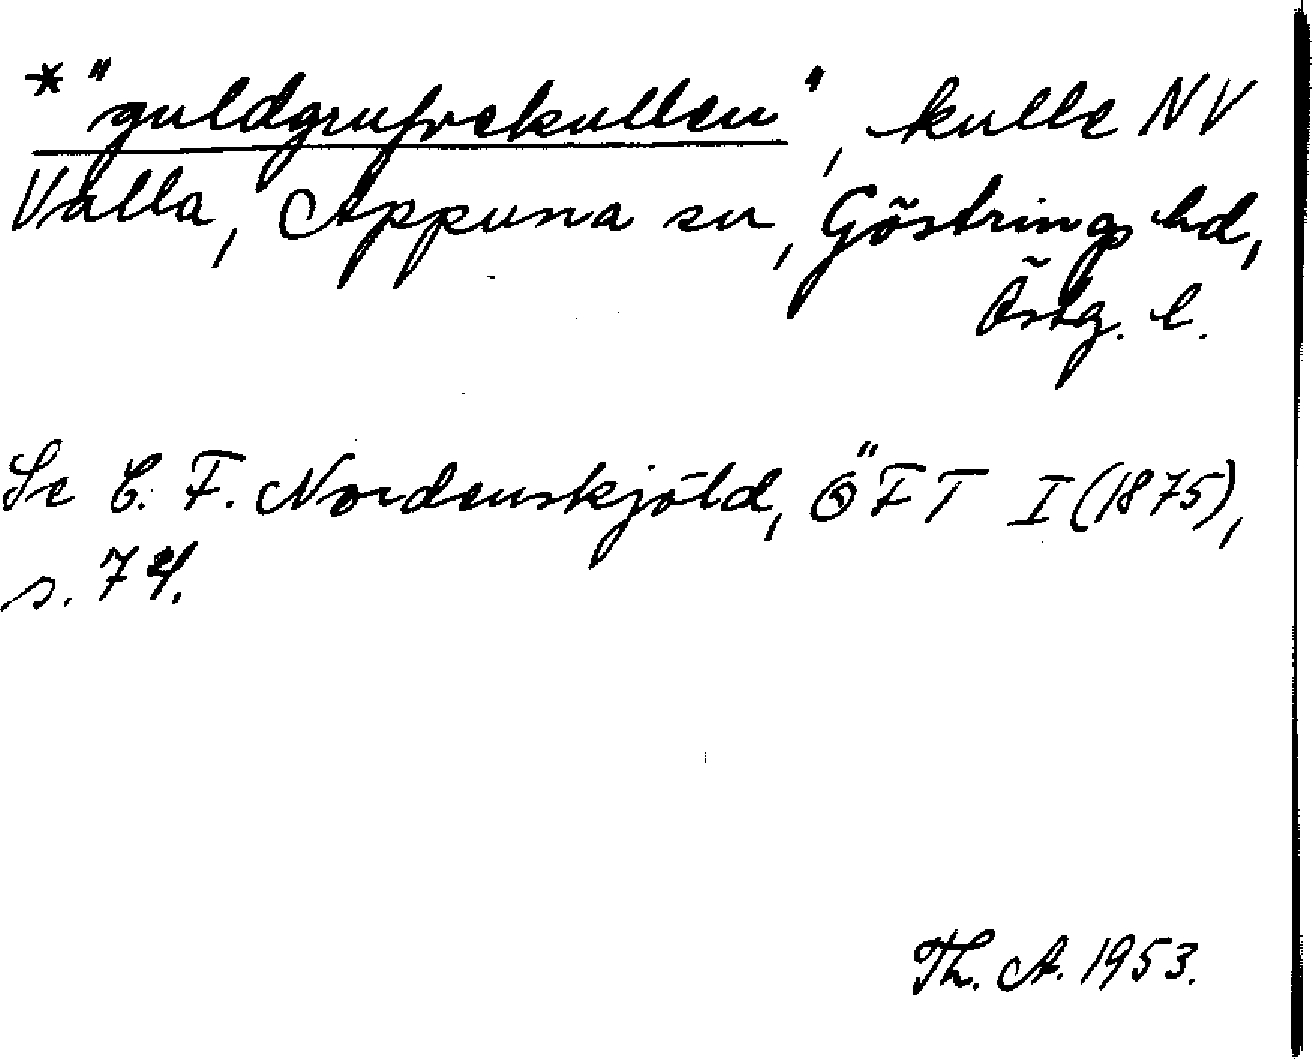 * "guldgrufvekullen", kulle NV
Valla, Appuna sn, Göstrings hd,
Östg. l.
Se C. F. Nordenskjöld, ÖFT I (1875),
s. 74.
Th. A. 1953.